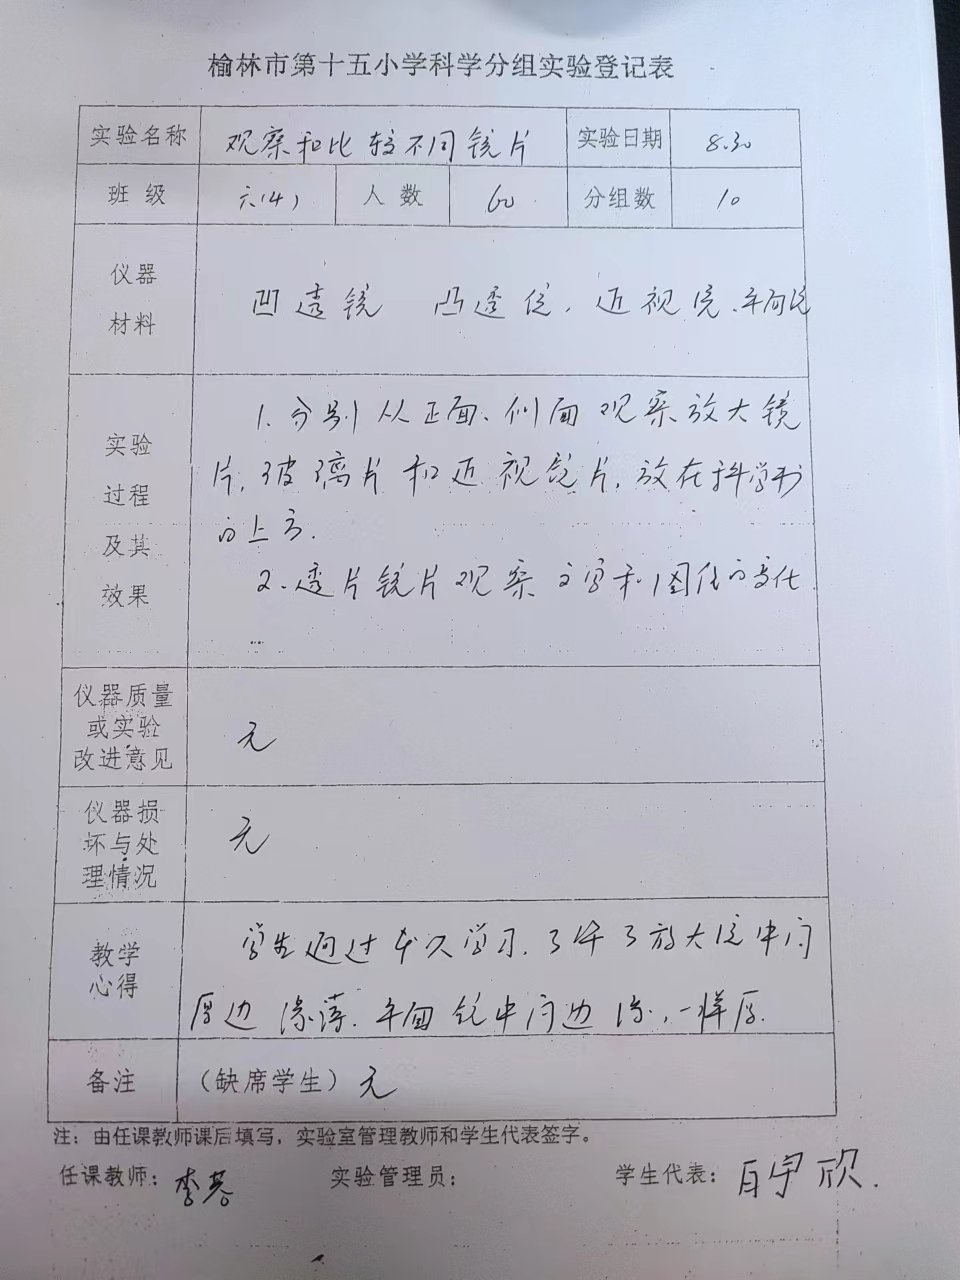 榆林市第十五小学科学分组实验登记表
实验名称 观察和比较不同镜片 实验日期 8.30
班级 六(4) 人数 60 分组数 10
仪器
材料
凹透镜 凸透镜、近视镜、平面镜
实验
过程
及其
效果
1、分别从正面、侧面观察放大镜
片,玻璃片和近视镜片,放在科学书
的上方.
2、透片镜片观察文字和图片的变化
仪器质量
或实验
改进意见
无
仪器损
坏与处
理情况
无
教学
心得
学生通过本次学习,了解了放大镜中间
厚边缘薄.平面镜中间边缘,一样厚.
备注 (缺席学生)无
注:由任课教师课后填写,实验室管理教师和学生代表签字。
任课教师:李 实验管理员: 学生代表:白宇欣.